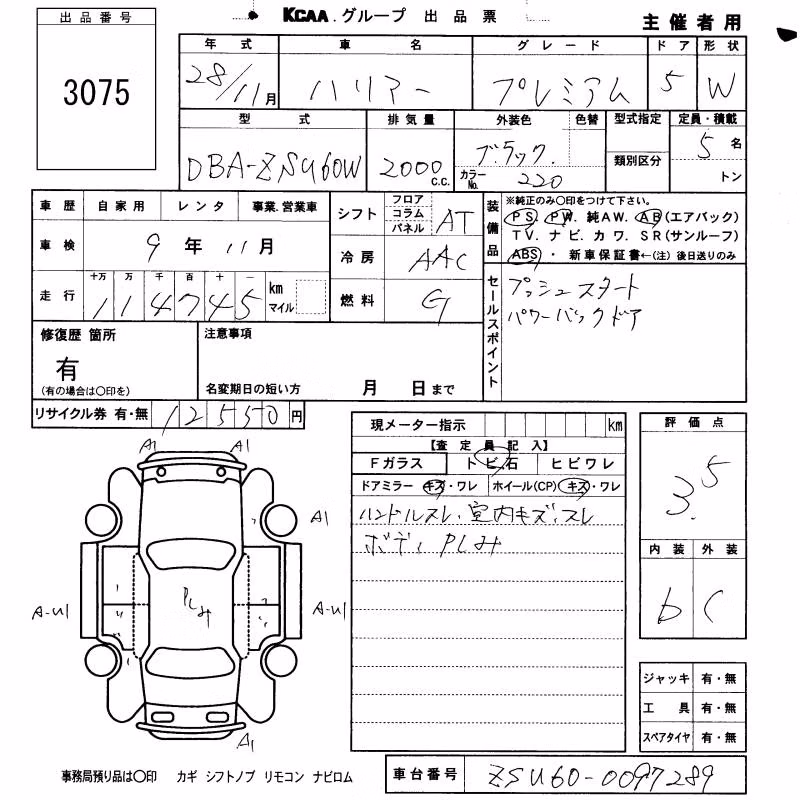 出品番号
3075
KCAA.グループ 出品票
主催者用
年式 車名 グレード ドア 形状
28/11月 ハリアー プレミアム 5 W
型式 排気量 外装色 色替 型式指定 定員・積載
DBA-ZSU60W 2000 c.c. ブラック. カラーNo. 220 類別区分 5名 トン
車歴 自家用 レンタ 事業.営業車
車検 9年11月
十万 万 千 百 十 一
走行 114745 km マイル
シフト フロア コラム パネル AT
冷房 AAC
燃料 G
装備品 ※純正のみ〇印をつけて下さい。
PS. PW. 純AW. AB(エアバック)
TV. ナビ. カワ. SR(サンルーフ)
ABS・ 新車保証書←(注) 後日送りのみ
セールスポイント
プッシュスタート
パワーバックドア
修復歴 箇所
有
(有の場合は〇印を)
注意事項
名変期日の短い方 月 日まで
リサイクル券 有・無 12550円
現メーター指示 km
【査定員記入】
Fガラス トビ石 ヒビワレ
ドアミラー キズ・ワレ ホイール(CP) キズ・ワレ
ハンドルスレ、室内キズ、スレ
ボディPLみ
評価点
3.5
内装 外装
b C
A1 A1
A1
A-U1 PLみ A-U1
A1
ジャッキ 有・無
工具 有・無
スペアタイヤ 有・無
事務局預り品は〇印 カギ シフトノブ リモコン ナビロム
車台番号 ZSU60-0097289